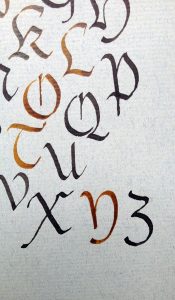 K L
O P
Q
T U
V X Y Z